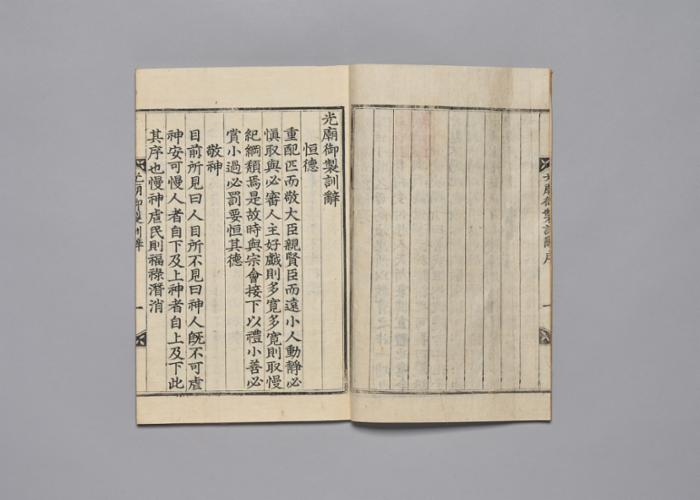 光廟御製訓辭序
一
光廟御製訓辭
恒德
重配匹而敬大臣親賢臣而遠小人動靜必
愼取與必審人主好戲則多寵多寵則取慢
紀綱頹焉是故時與宗會接下以禮小善必
賞小過必罰要恒其德
敬神
目前所見曰人目所不見曰神人旣不可虐
神安可慢人者自下及上神者自上及下此
其序也慢神虐民則福祿潛消
光廟御製訓辭
一